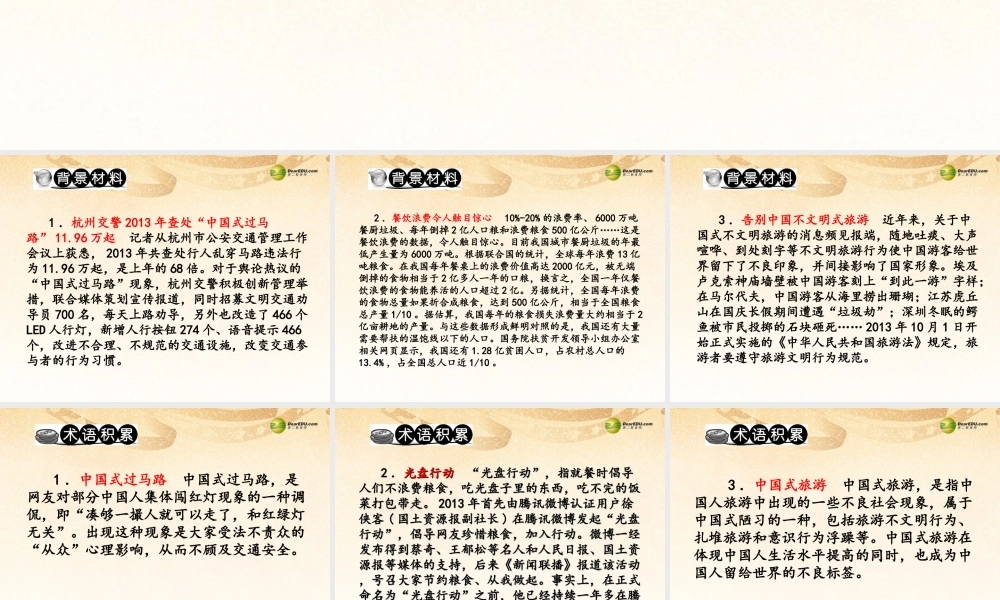 背景材料
DearEDU.com
1．杭州交警 2013 年查处“中国式过马
路” 11.96 万起 记者从杭州市公安交通管理工作
会议上获悉， 2013 年共查处行人乱穿马路违法行
为 11.96 万起，是上年的 68 倍。对于舆论热议的
“中国式过马路”现象，杭州交警积极创新管理举
措，联合媒体策划宣传报道，同时招募文明交通劝
导员 700 名，每天上路劝导，另外也改造了 466 个
LED 人行灯，新增人行按钮 274 个、语音提示 466
个，改进不合理、不规范的交通设施，改变交通参
与者的行为习惯。
背景材料
DearEDU.com
2．餐饮浪费令人触目惊心 10%~20% 的浪费率、 6000 万吨
餐厨垃圾、每年倒掉 2 亿人口粮和浪费粮食 500 亿公斤……这是
餐饮浪费的数据，令人触目惊心。目前我国城市餐厨垃圾的年最
低产生量为 6000 万吨。根据联合国的统计，全球每年浪费 13 亿
吨粮食。在我国每年餐桌上的浪费价值高达 2000 亿元，被无端
倒掉的食物相当于 2 亿多人一年的口粮，换言之，全国一年仅餐
饮浪费的食物能养活的人口超过 2 亿。另据统计，全国每年浪费
的食物总量如果折合成粮食，达到 500 亿公斤，相当于全国粮食
总产量 1/10 。据估算，我国每年的粮食损失浪费量大约相当于 2
亿亩耕地的产量。与这些数据形成鲜明对照的是，我国还有大量
需要帮扶的温饱线以下的人口。国务院扶贫开发领导小组办公室
相关网页显示，我国还有 1.28 亿贫困人口，占农村总人口的
13.4% ，占全国总人口近 1/10 。
背景材料
DearEDU.com
3．告别中国不文明式旅游 近年来，关于中
国式不文明旅游的消息频见报端，随地吐痰、大声
喧哗、到处刻字等不文明旅游行为使中国游客给世
界留下了不良印象，并间接影响了国家形象。埃及
卢克索神庙墙壁被中国游客刻上“到此一游”字样；
在马尔代夫，中国游客从海里捞出珊瑚；江苏虎丘
山在国庆长假期间遭遇“垃圾劫”；深圳冬眠的鳄
鱼被市民投掷的石块砸死…… 2013 年 10 月 1 日开
始正式实施的《中华人民共和国旅游法》规定，旅
游者要遵守旅游文明行为规范。
术语积累
DearEDU.com
1．中国式过马路 中国式过马路，是
网友对部分中国人集体闯红灯现象的一种调
侃，即“凑够一撮人就可以走了，和红绿灯
无关”。出现这种现象是大家受法不责众的
“从众”心理影响，从而不顾及交通安全。
术语积累
DearEDU.com
2．光盘行动 “光盘行动”，指就餐时倡导
人们不浪费粮食，吃光盘子里的东西，吃不完的饭
菜打包带走。 2013 年首先由腾讯微博认证用户徐
侠客（国土资源报副社长）在腾讯微博发起“光盘
行动”，倡导网友珍惜粮食，加入行动。微博一经
发布得到蔡奇、王郁松等名人和人民日报、国土资
源报等媒体的支持，后来《新闻联播》报道该活动
，号召大家节约粮食、从我做起。事实上，在正式
命名为“光盘行动”之前，他已经持续一年多在腾
术语积累
DearEDU.com
3．中国式旅游 中国式旅游，是指中
国人旅游中出现的一些不良社会现象，属于
中国式陋习的一种，包括旅游不文明行为、
扎堆旅游和意识行为浮躁等。中国式旅游在
体现中国人生活水平提高的同时，也成为中
国人留给世界的不良标签。